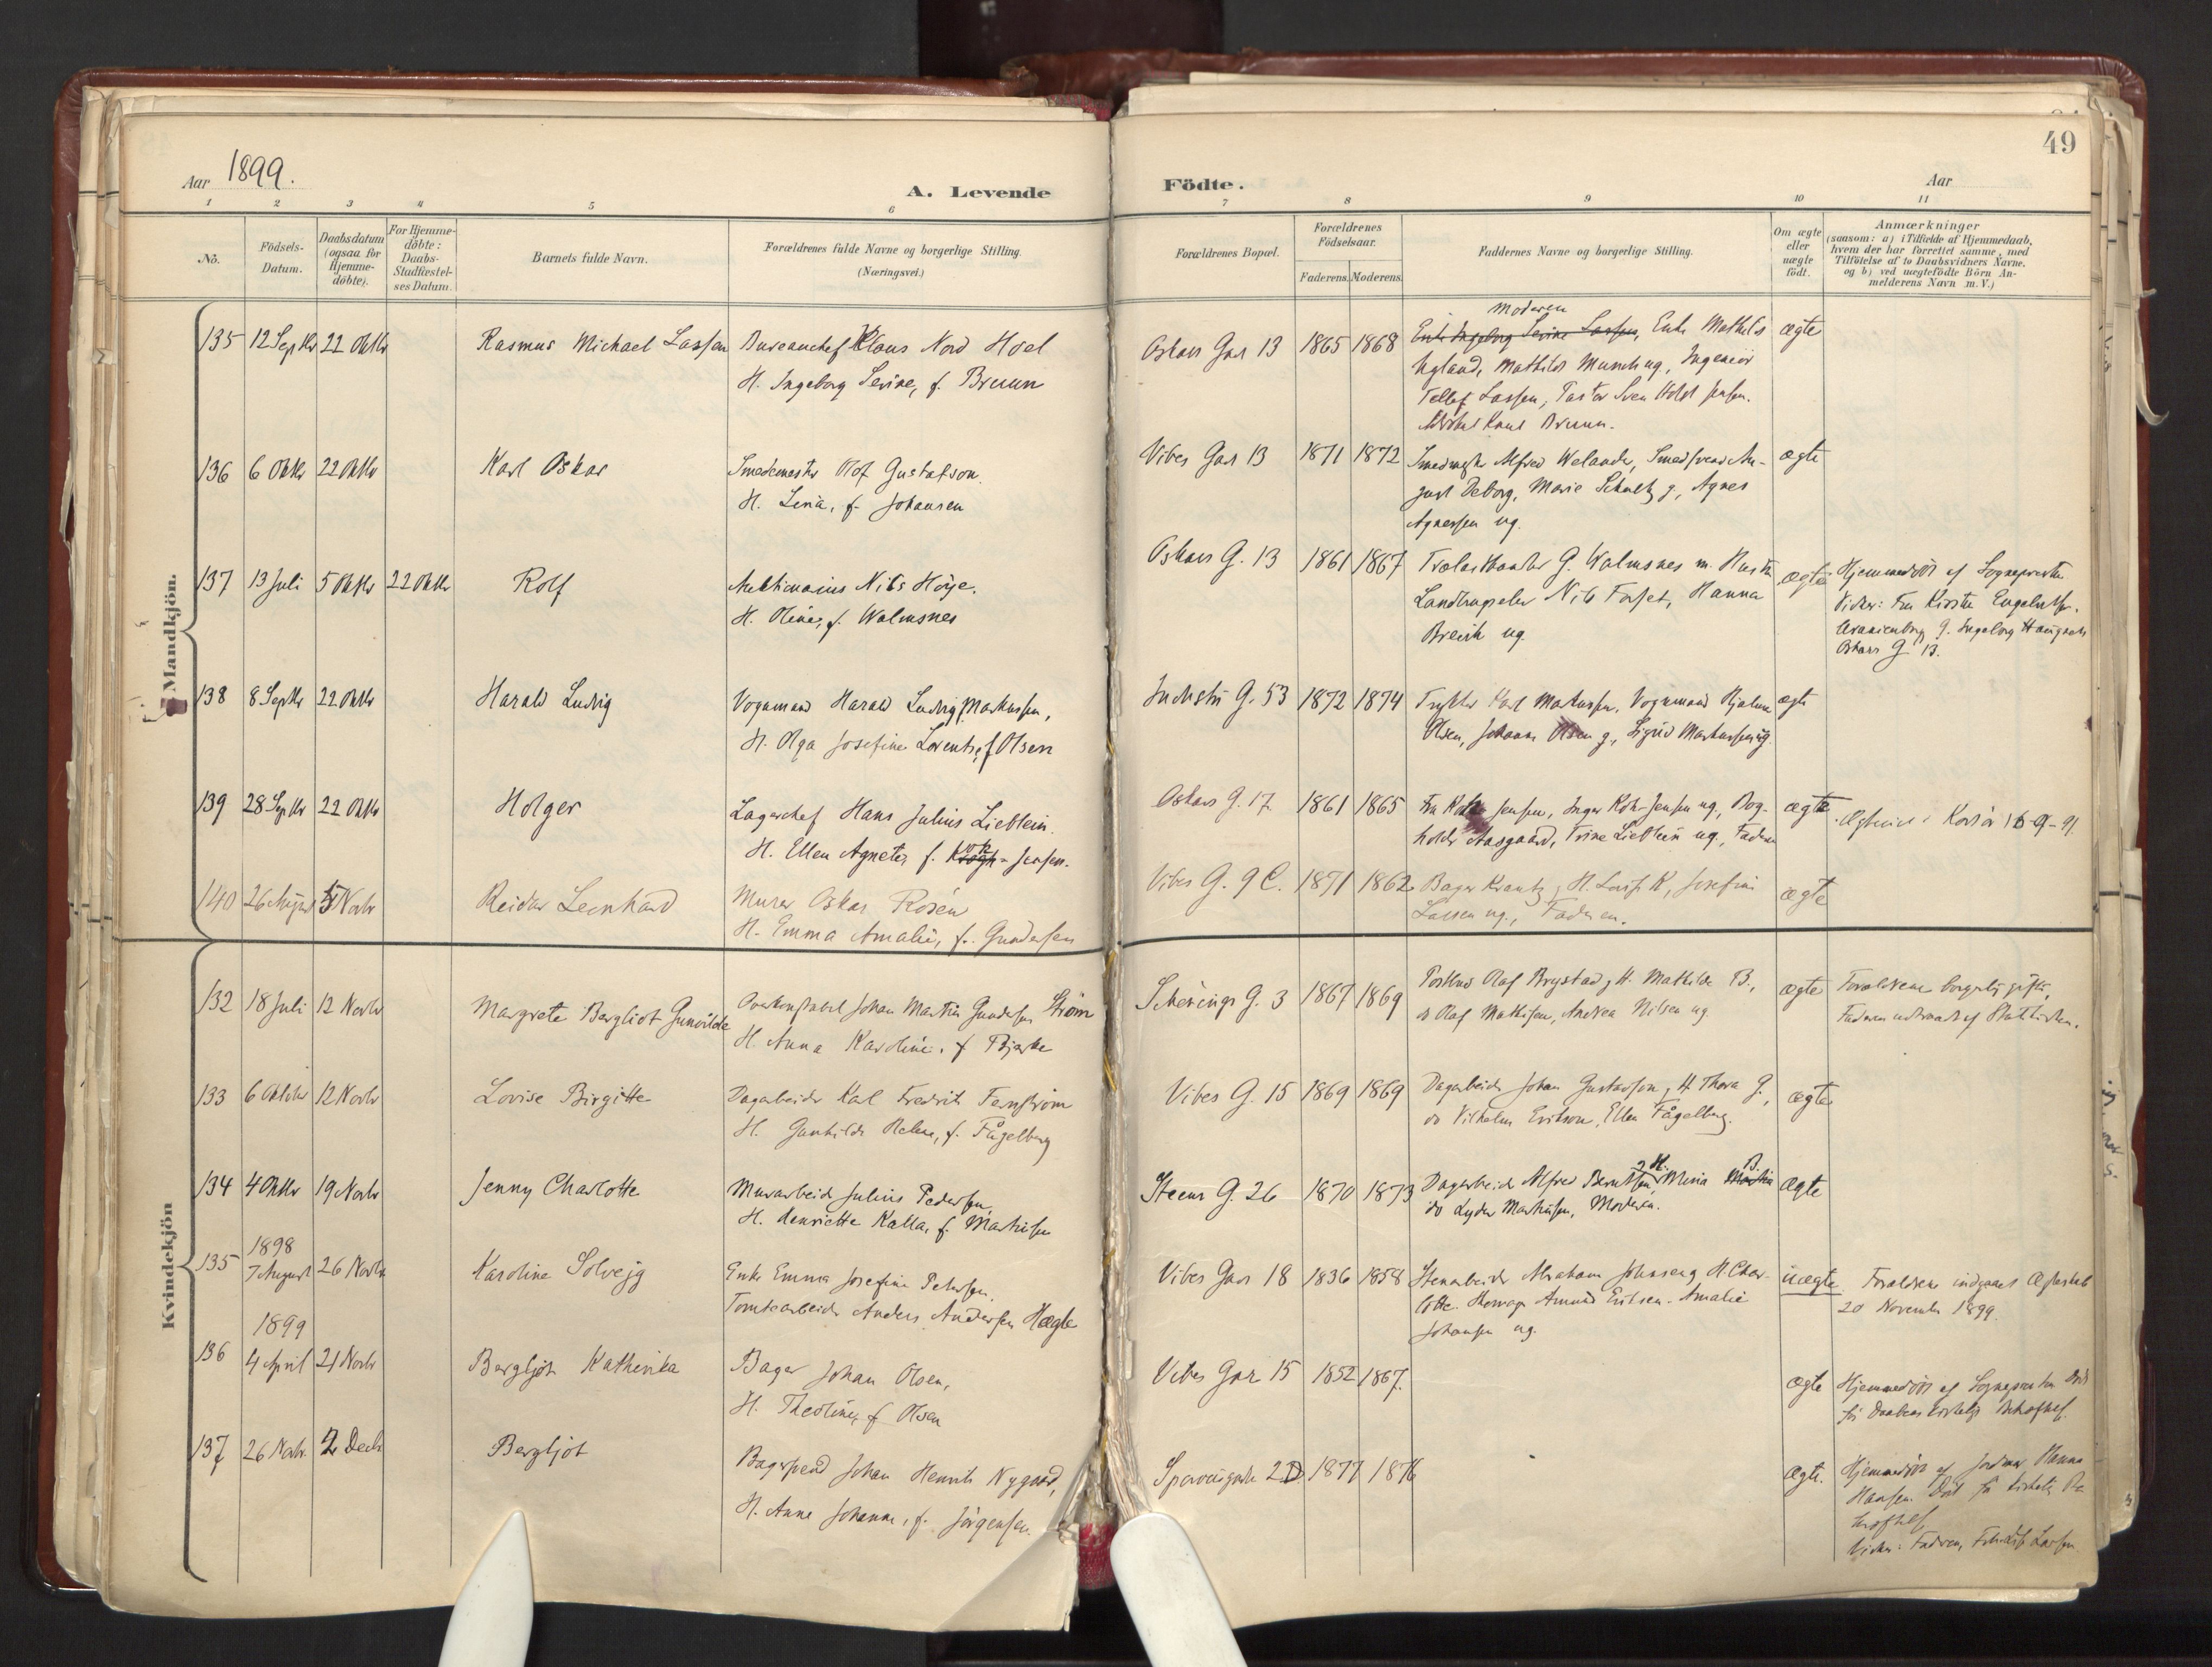 49
Aar 1899.
A. Levende Födte.
Aar
1 2 3 4 5 6 7 8 9 10 11
No.
Födsels-Datum.
Daabsdatum (ogsaa for Hjemme-döbte).
For Hjemme-döbte: Daabs-Stadfæstel-ses Datum.
Barnets fulde Navn.
Forældrenes fulde Navne og borgerlige Stilling.
(Næringsvei.)
Forældrenes Bopæl.
Forældrenes Födselsaar.
Faderens. Moderens.
Faddernes Navne og borgerlige Stilling.
Om ægte eller uægte födt.
Anmærkninger
(saasom: a) i Tilfælde af Hjemmedaab,
hvem der har forrettet samme, med
Tilföielse af to Daabsvidners Navne.
og b) ved uægtefödte Börn An-
melderens Navn m. V.)
Mandkjön.
135 12 Septbr 22 Oktbr Rasmus Michael Lassen
Bureauchef Klaus Nord Hoel
H. Ingeborg Sevine, f. Bruun
Oskars Gad 13 1865 1868
Moderen
Enke Ingeborg Sevine Lassen, Enke Mathilde
Nyland, Mathilde Munch ug, Ingeniör
Tellef Lassen, Pastor Sven Holst Jensen.
Knud Bruun.
ægte
136 6 Oktbr 22 Oktbr Karl Oskar
Smedemester Olof Gustafson.
H. Lina, f. Johansen
Vibes Gad 13 1871 1872
Smedmester Alfred Welander, Smedsvend Au-
gust Deborg, Marie Schultz g, Agnes
Agnessen ug.
ægte
137 13 Juli 5 Oktbr 22 Oktbr Rolf
Auktionarius Nils Höye.
H. Oline, f. Walmsnes
Oskars G. 13 1861 1867
Trælasthandler G. Walmsnes m. Hustru
Landhandler Nils Forset, Hanna
Brevik ug
ægte
Hjemmedöbt af Sognepresten
Vidner: Fru Kirstin Engebretsen.
Uranienborg g. Ingeborg Haugnes
Oskars G 13.
138 8 Septbr 22 Oktbr Harald Ludvig
Vognmand Harald Ludvig Markussen,
H. Olga Josefine Lorentse, f Olsen
Industri G. 53 1872 1874
Trykker Karl Markussen, Vognmand Hjalmar
Olsen, Johanne Olsen g, Sigrid Markussen ug.
ægte
139 28 Septbr 22 Oktbr Holger
Lagerchef Hans Julius Lieblein.
H. Ellen Agnete, f. Koht-Jensen.
Oskars G. 17. 1861 1865
Fru Koht Jensen, Inger Koht-Jensen ug, Bog-
holder Aasgaard, Trine Lieblein ug., Faderen
ægte
Ægteviet i Korsör 16-9-91.
140 26 August 5 Novbr Reidar Leonhard
Murer Oskar Rosén
H. Emma Amalie, f. Gundersen
Vibes G. 9 C. 1871 1862
Bager Krantz, H. Lovise K, Josefine
Lassen ug., Faderen.
ægte
Kvindekjön
132 18 Juli 12 Novbr Margrete Bergliot Gunvilde
Overkonstabel Johan Martin Gundersen Ström
H. Anna Karoline, f Bjerke
Schönings G. 3 1867 1869
Postbud Olaf Brystad, H. Mathilde B.,
do Olaf Mathisen, Andrea Nilsen ug
ægte
Forældrene borgerlig gifte,
Faderen udtraadt af Statskirken.
133 6 Oktober 12 Novbr Lovise Birgitte
Dagarbeider Karl Fredrik Fernström
H. Gunhilde Helene, f. Fågelberg
Vibes G. 15 1869 1869
Dagarbeider Johan Gustavson, H Thora G.,
do Vilhelm Erikson, Ellen Fågelberg.
ægte
134 4 Oktbr 19 Novbr Jenny Charlotte
Murarbeider Julius Pedersen,
H. Henriette Kalla, f. Mathisen
Steens G. 26 1870 1873
Dagarbeider Alfred Berntsen g H. Mina B.
do Lyder Markusen, Moderen.
ægte
135 1898 7 August 26 Novbr Karoline Solvejg
Enke Emma Josefine Petersen.
Tomtearbeider Anders Andersen Hægle
Vibes Gad 18 1836 1858
Stenarbeider Abraham Johnsen g H. Char-
lotte. Amund Eriksen. Amalie
Johansen ug.
uægte
Forældrene indgaaet Ægteskab
20 November 1899.
136 1899 4 April 21 Novbr Bergljot Katherika
Bager Johan Olsen,
H. Theoline, f Olsen
Vibes Gad 15 1852 1867.
ægte
Hjemmedöbt af Sognepresten Död
för Daabens kirkelige Bekræftelse.
137 26 Novbr. 2 Decbr Bergljot
Bagersvend Johan Henrik Nygaard,
H. Anne Johanne, f. Jörgensen.
Sporveisgade 2D 1877 1876
ægte.
Hjemmedöbt af Jordmor Hanna
Hansen. Död för kirkelig Be-
kræftelse
Vidner: Faderen, Larsen.